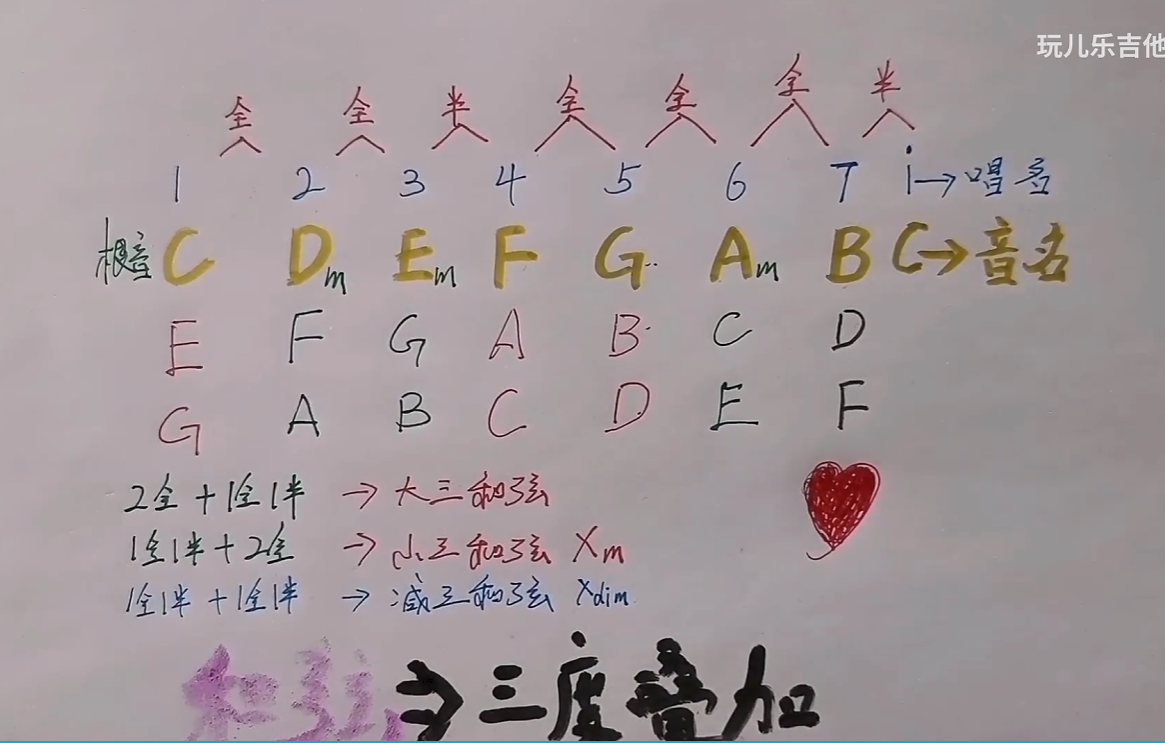 玩儿乐吉他
全 全 半 全 全 全 半
1 2 3 4 5 6 7 i→唱名
根音 C Dm Em F G Am B C→音名
E F G A B C D
G A B C D E F
2全+1全1半 → 大三和弦
1全1半+2全 → 小三和弦 Xm
1全1半+1全1半 → 减三和弦 Xdim
和弦⇒三度叠加